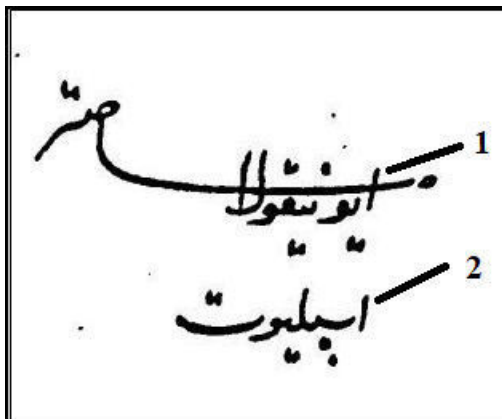 ايو نيقولا 1
اسپليوت 2